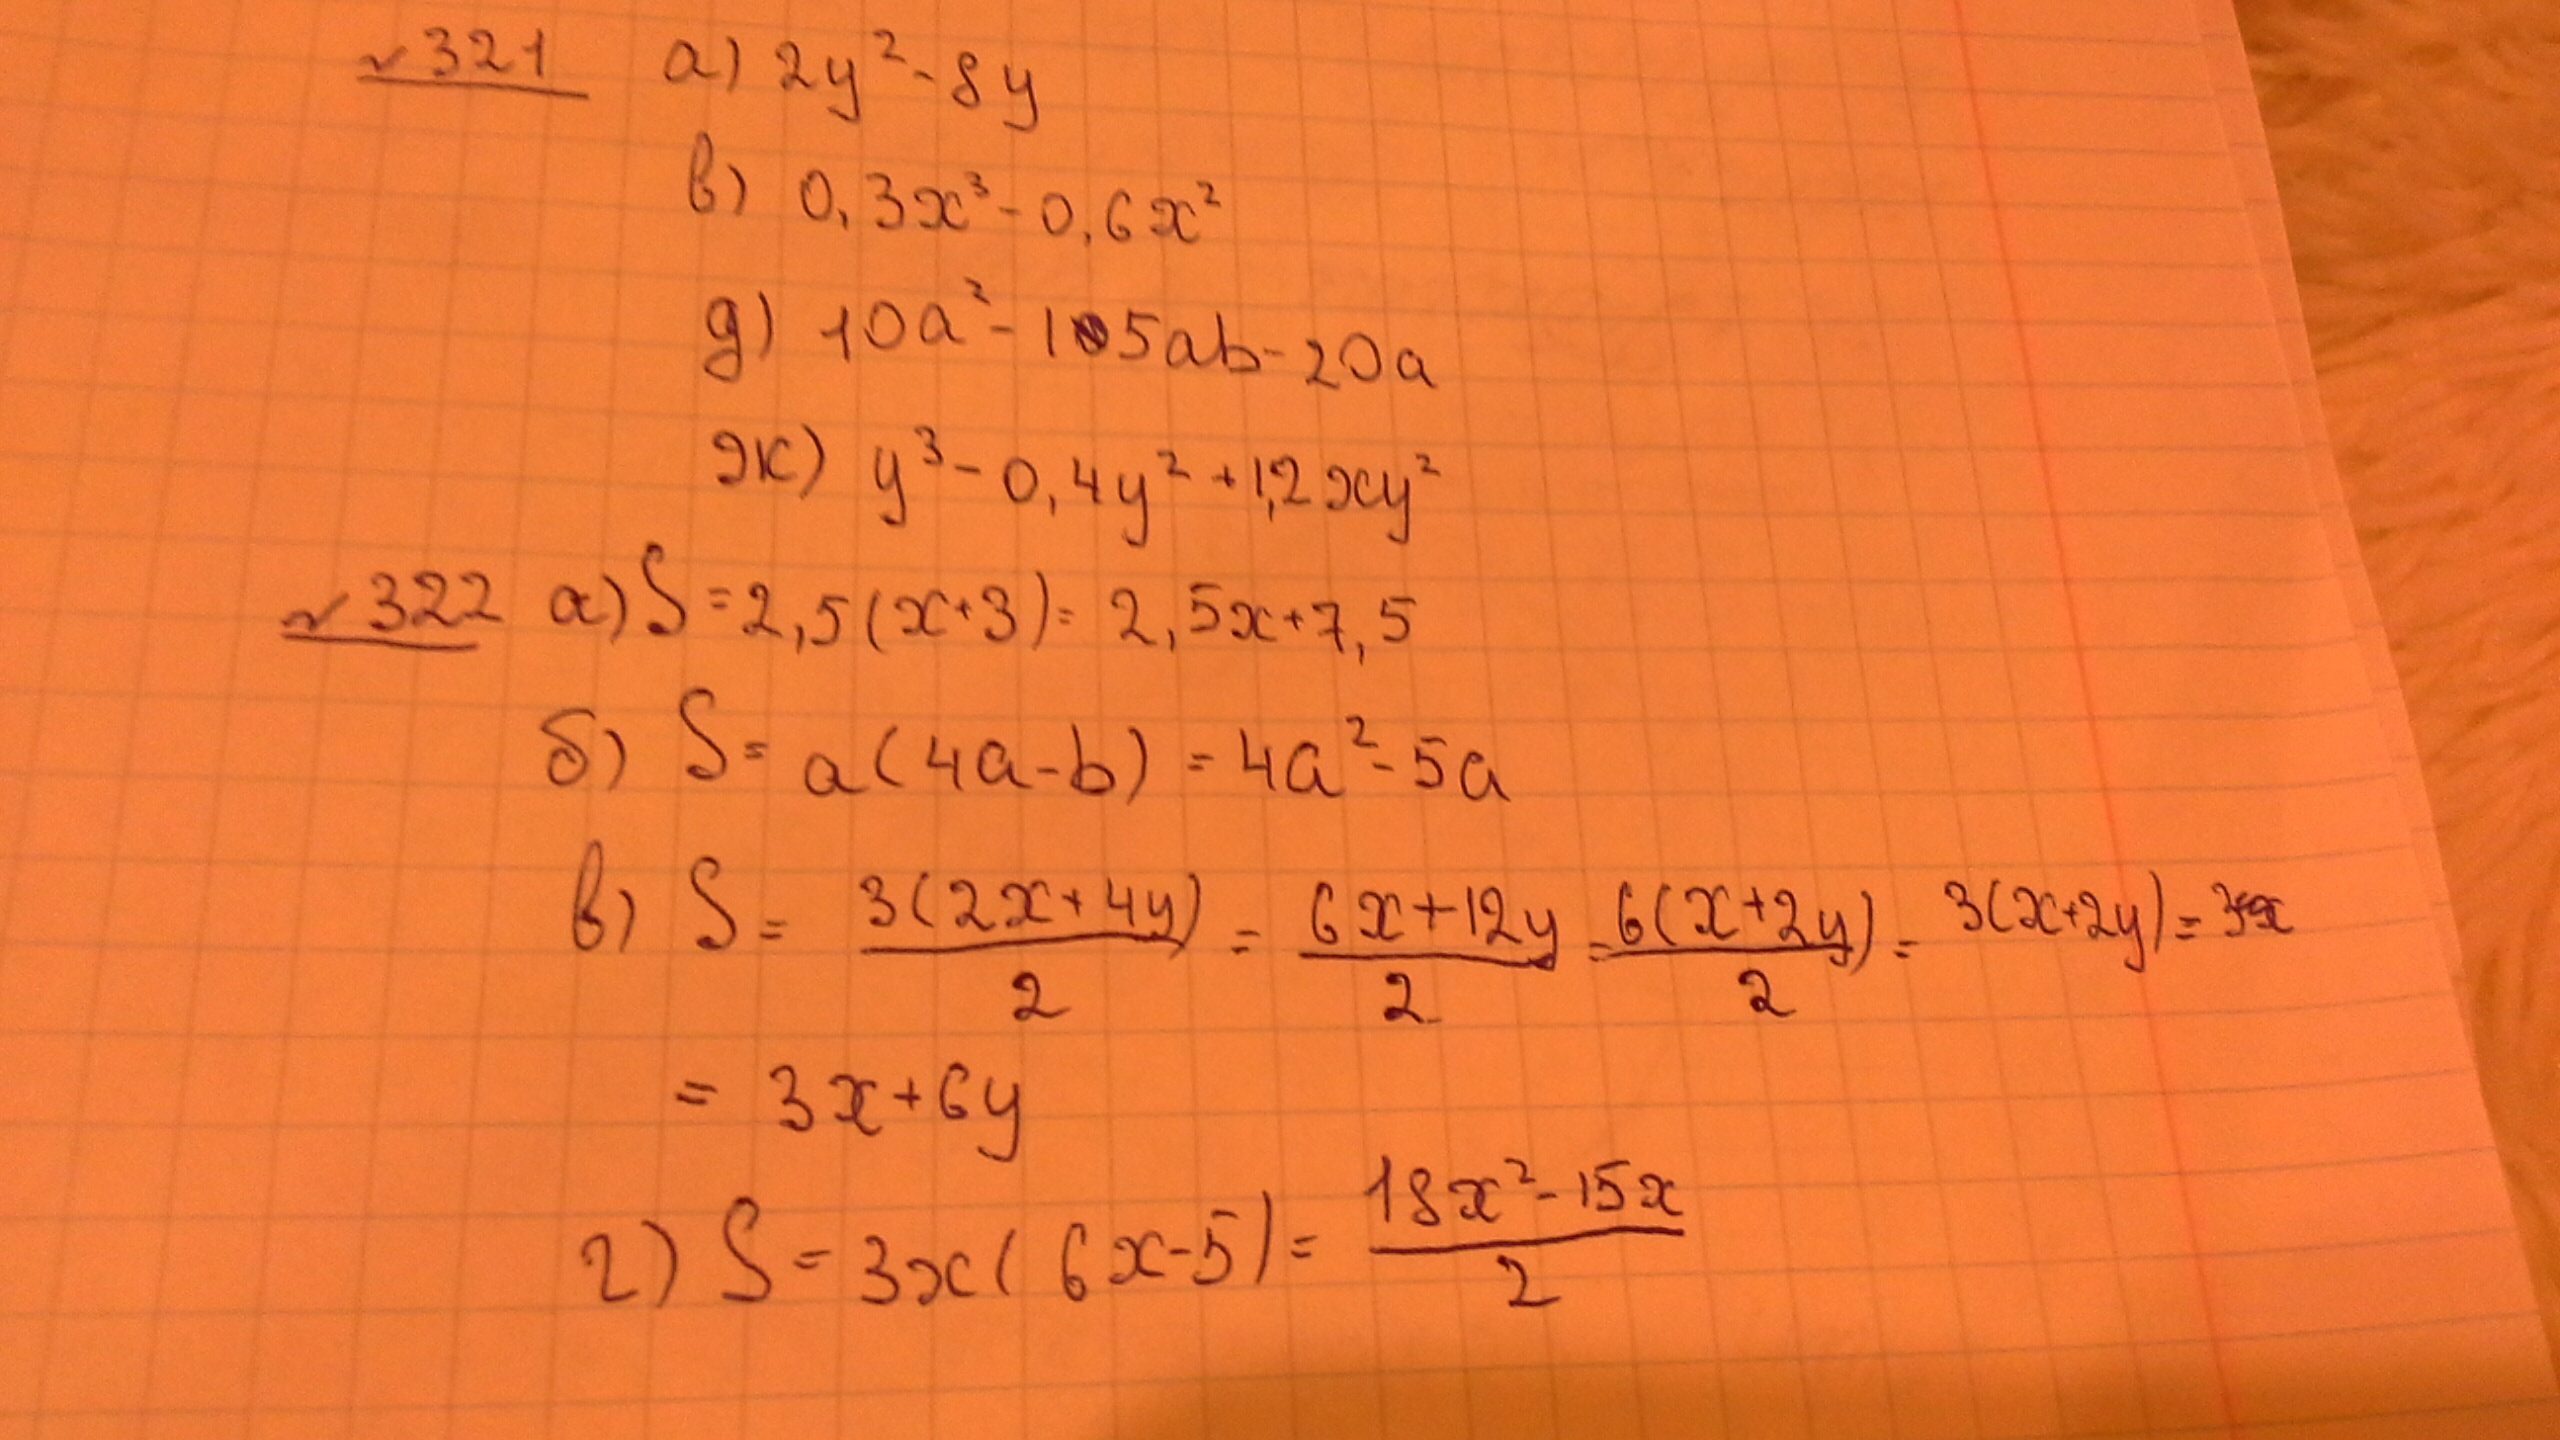 №321 а) 2y² - 8y
в) 0,3x³ - 0,6x²
д) 10a² - 15ab - 20a
ж) y³ - 0,4y² + 1,2xy²
№322 а) S = 2,5(x+3) = 2,5x+7,5
б) S = a(4a-b) = 4a² - 5a
в) S = 3(2x+4y)/2 = 6x+12y/2 = 6(x+2y)/2 = 3(x+2y) =
= 3x+6y
г) S = 3x(6x-5) = 18x²-15x/2